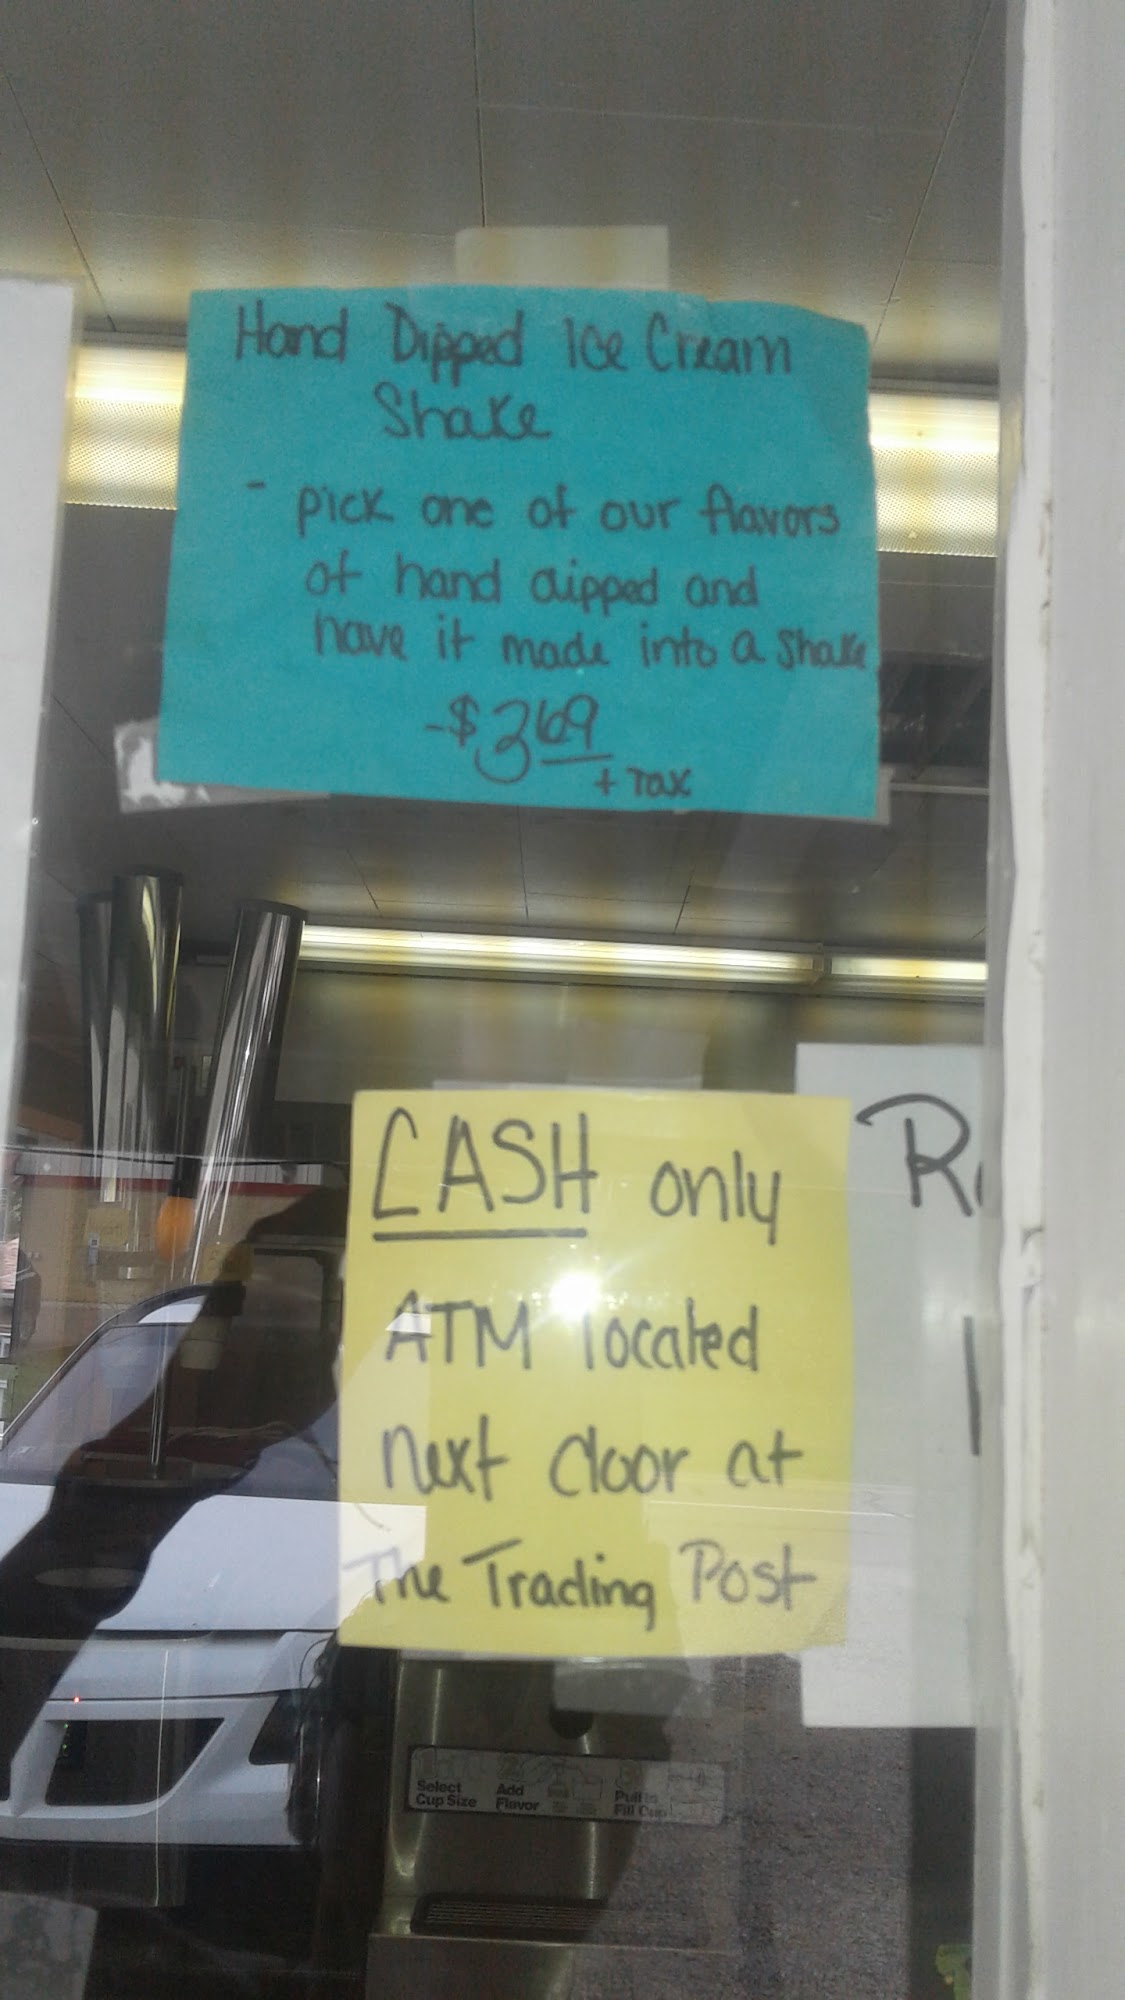 Hand Dipped Ice Cream
Shake
- pick one of our flavors
of hand dipped and
have it made into a shake
-$3.69
+ Tax
CASH only
ATM located
next door at
The Trading Post
R
Select
Cup Size
Add
Flavor
Pull to
Fill Cup